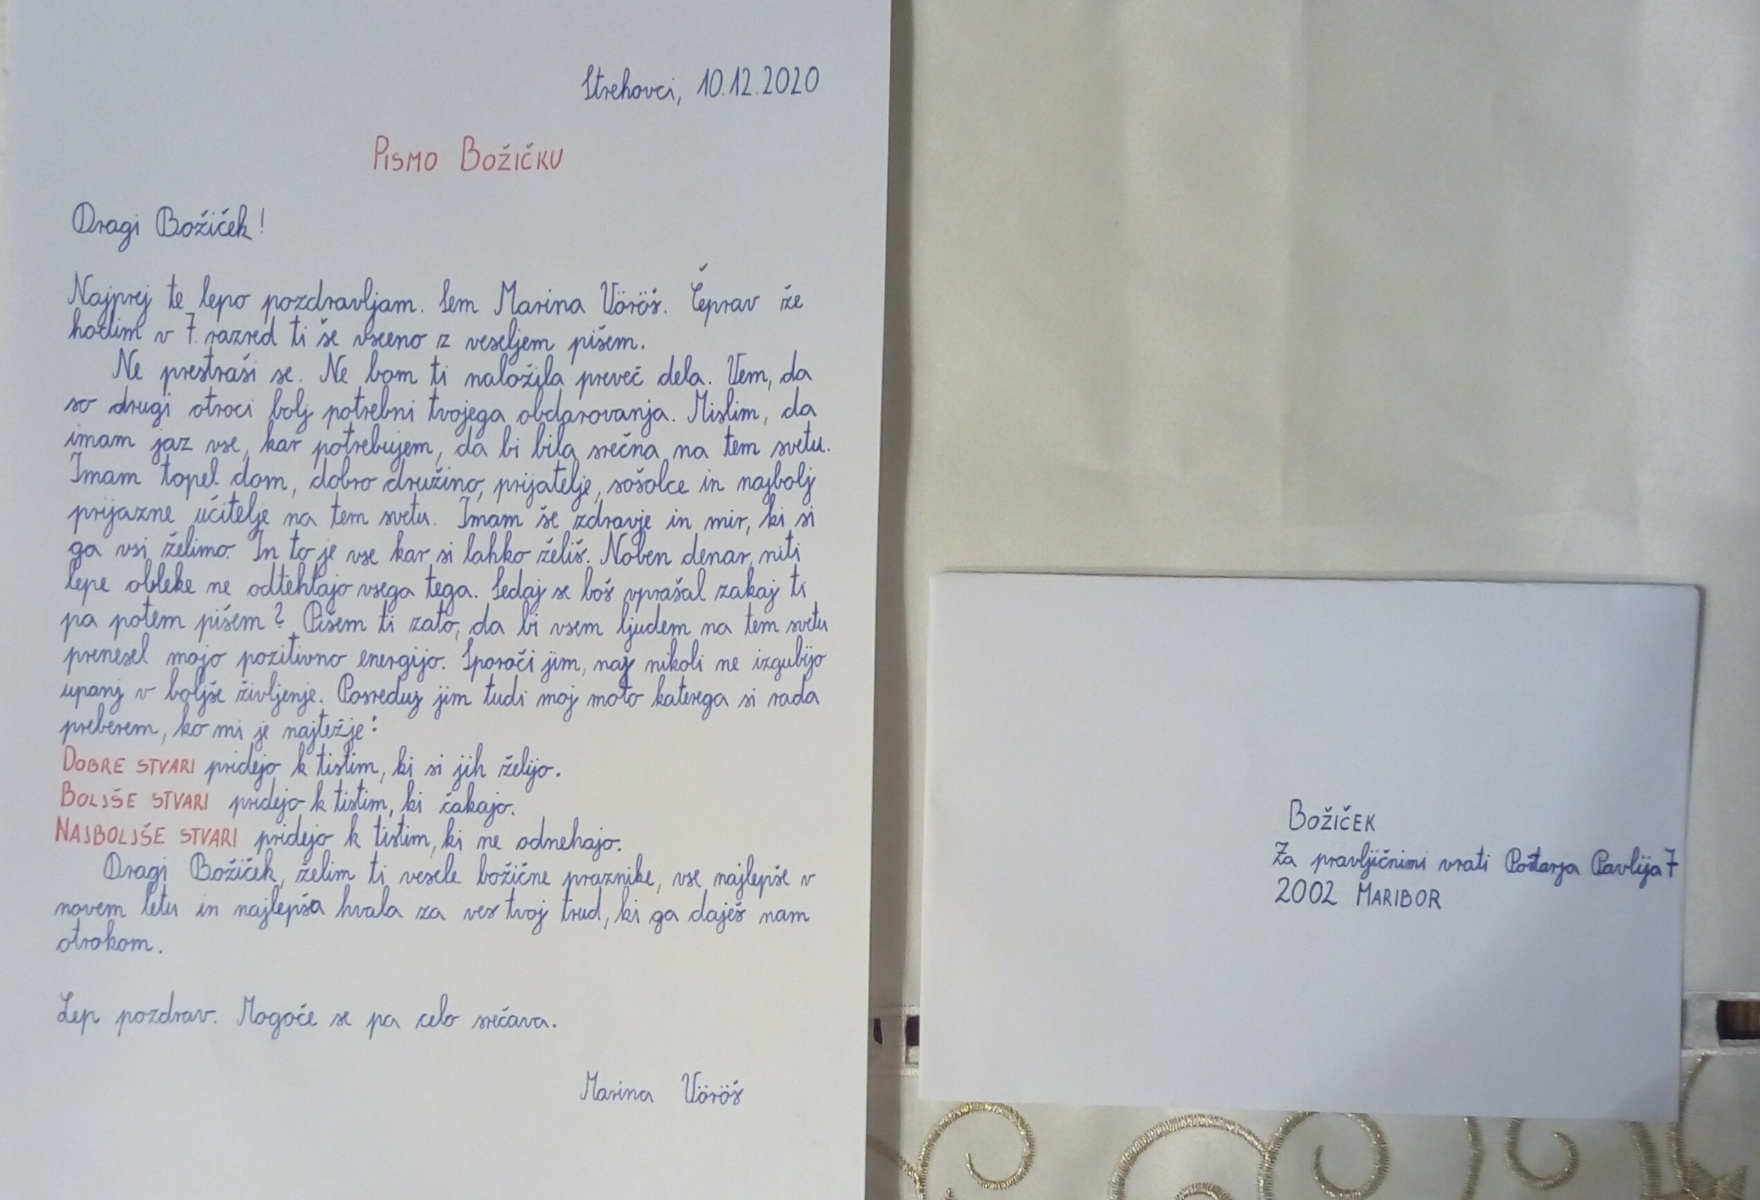 Strehovci, 10.12.2020
PISMO BOŽIČKU
Dragi Božiček!
Najprej te lepo pozdravljam. Sem Marina Vöröš. Čeprav že
hodim v 7. razred ti še vseeno z veseljem pišem.
Ne prestraši se. Ne bom ti naložila preveč dela. Vem, da
so drugi otroci bolj potrebni tvojega obdarovanja. Mislim, da
imam jaz vse, kar potrebujem, da bi bila srečna na tem svetu.
Imam topel dom, dobro družino, prijatelje, sošolce in najbolj
prijazne učitelje na tem svetu. Imam še zdravje in mir, ki si
ga vsi želimo. In to je vse kar si lahko želiš. Noben denar, niti
lepe obleke ne odtehtajo vsega tega. Sedaj se boš vprašal zakaj ti
pa potem pišem? Pišem ti zato, da bi vsem ljudem na tem svetu
prenesel mojo pozitivno energijo. Sporoči jim, naj nikoli ne izgubijo
upanj v boljše življenje. Posreduj jim tudi moj moto katerega si rada
preberem, ko mi je najtežje:
DOBRE STVARI pridejo k tistim, ki si jih želijo.
BOLJŠE STVARI pridejo k tistim, ki čakajo.
NAJBOLJŠE STVARI pridejo k tistim, ki ne odnehajo.
Dragi Božiček, želim ti vesele božične praznike, vse najlepše v
novem letu in najlepša hvala za ves tvoj trud, ki ga daješ nam
otrokom.
Lep pozdrav. Mogoče se pa celo srečava.
Marina Vöröš
BOŽIČEK
Za pravljičnimi vrati Poštarja Pavlija 7
2002 MARIBOR